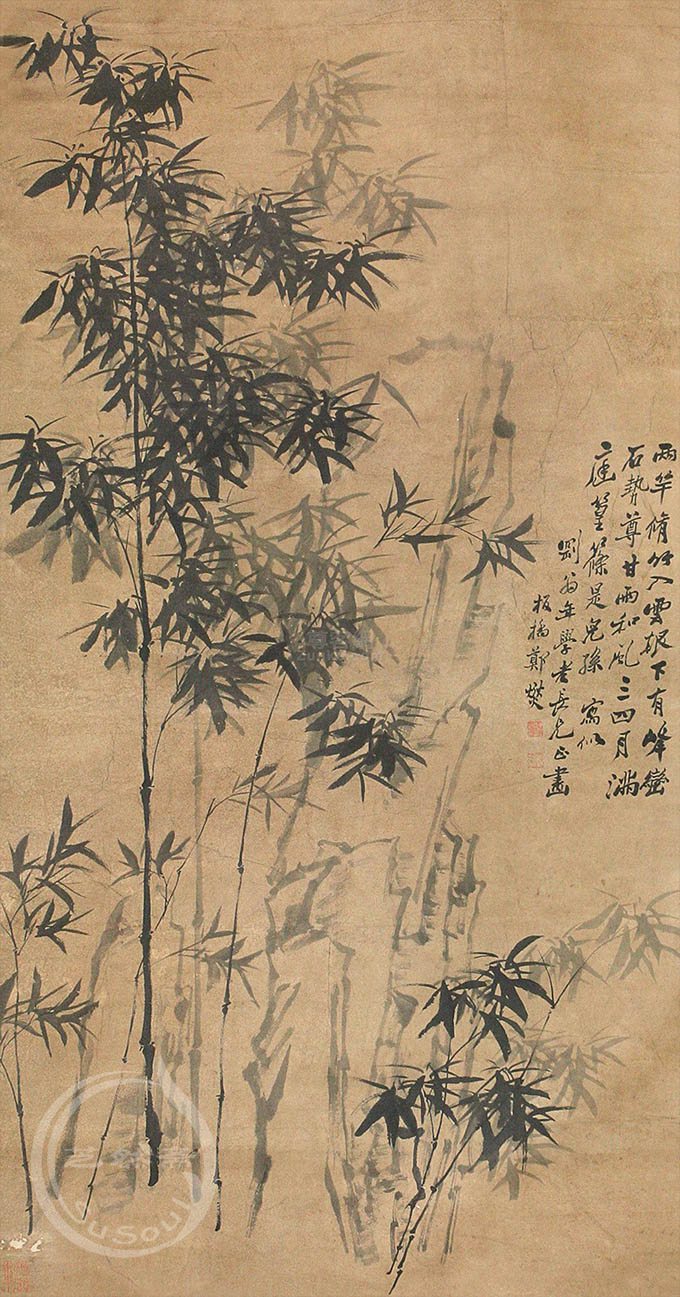 兩竿脩竹入雲根下有峰巒
石勢尊甘雨和風三四月滿
庭篁篠是兒孫 寫似
翁年學老長兄正畫
板橋鄭燮